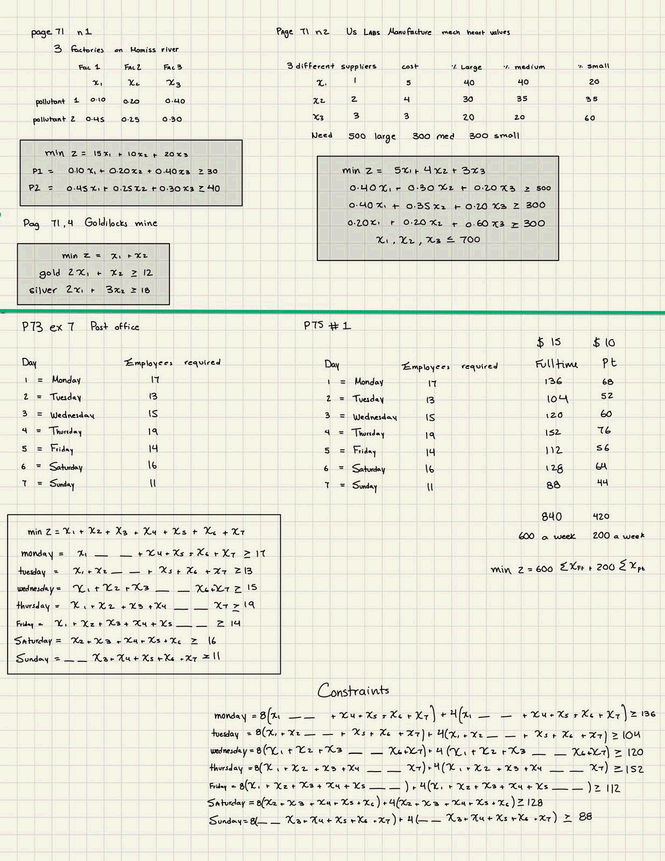 page 71 n1
3 Factories on Momiss river
Fac 1 Fac 2 Fac 3
x1 x2 x3
pollutant 1 0.10 0.20 0.40
pollutant 2 0.45 0.25 0.30
min z = 15x1 + 10x2 + 20x3
P1 = 0.10x1 + 0.20x2 + 0.40x3 ≥ 30
P2 = 0.45x1 + 0.25x2 + 0.30x3 ≥ 40
Pag 71,4 Goldilocks mine
min z = x1 + x2
gold 2x1 + x2 ≥ 12
silver 2x1 + 3x2 ≥ 18
Page 71 n2 Us Labs Manufacture mech heart valves
3 different suppliers cost % Large % medium % small
x1 1 5 40 40 20
x2 2 4 30 35 35
x3 3 3 20 20 60
Need 500 large 300 med 300 small
min z = 5x1 + 4x2 + 3x3
0.40x1 + 0.30x2 + 0.20x3 ≥ 500
0.40x1 + 0.35x2 + 0.20x3 ≥ 300
0.20x1 + 0.20x2 + 0.60x3 ≥ 300
x1, x2, x3 ≤ 700
P73 ex 7 Post office
Day Employees required
1 = Monday 17
2 = Tuesday 13
3 = Wednesday 15
4 = Thursday 19
5 = Friday 14
6 = Saturday 16
7 = Sunday 11
min z = x1 + x2 + x3 + x4 + x5 + x6 + x7
monday = x1 __ __ + x4 + x5 + x6 + x7 ≥ 17
tuesday = x1 + x2 __ __ + x5 + x6 + x7 ≥ 13
wednesday = x1 + x2 + x3 __ __ x6 + x7 ≥ 15
thursday = x1 + x2 + x3 + x4 __ __ x7 ≥ 19
Friday = x1 + x2 + x3 + x4 + x5 __ __ ≥ 14
Saturday = x2 + x3 + x4 + x5 + x6 ≥ 16
Sunday = __ __ x3 + x4 + x5 + x6 + x7 ≥ 11
P75 # 1
$ 15 $ 10
Day Employees required Full time Pt
1 = Monday 17 136 68
2 = Tuesday 13 104 52
3 = Wednesday 15 120 60
4 = Thursday 19 152 76
5 = Friday 14 112 56
6 = Saturday 16 128 64
7 = Sunday 11 88 44
840 420
600 a week 200 a week
min z = 600 Σx + 200 Σxpt
Constraints
monday = 8(x1 __ __ + x4 + x5 + x6 + x7) + 4(x1 __ __ + x4 + x5 + x6 + x7) ≥ 136
tuesday = 8(x1 + x2 __ __ + x5 + x6 + x7) + 4(x1 + x2 __ __ + x5 + x6 + x7) ≥ 104
wednesday = 8(x1 + x2 + x3 __ __ x6 + x7) + 4(x1 + x2 + x3 __ __ x6 + x7) ≥ 120
thursday = 8(x1 + x2 + x3 + x4 __ __ x7) + 4(x1 + x2 + x3 + x4 __ __ x7) ≥ 152
Friday = 8(x1 + x2 + x3 + x4 + x5 __ __) + 4(x1 + x2 + x3 + x4 + x5 __ __) ≥ 112
Saturday = 8(x2 + x3 + x4 + x5 + x6) + 4(x2 + x3 + x4 + x5 + x6) ≥ 128
Sunday = 8(__ __ x3 + x4 + x5 + x6 + x7) + 4(__ __ x3 + x4 + x5 + x6 + x7) ≥ 88